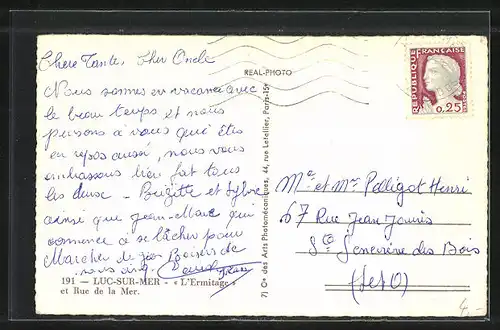 Chere Tante, Cher Oncle
Nous sommes en vacances avec
le beau temps et nous
pensons à vous qui êtes
en repos aussi, nous vous
embrassons bien fort tous
les deux - Brigitte et Sylvie
ainsi que Jean-Marc qui
commence a se lâcher pour
Marcher de gros Baisers de
nous cinq.
191 — LUC-SUR-MER - « L'Ermitage »
et Rue de la Mer.
REAL-PHOTO
7) Cie des Arts Photomécaniques, 44, rue Letellier, Paris-15e
REPUBLIQUE FRANÇAISE
0,25
Me et Mr Pelligot Henri
67 Rue Jean Jaurès
Ste Geneviève des Bois
(S et O)